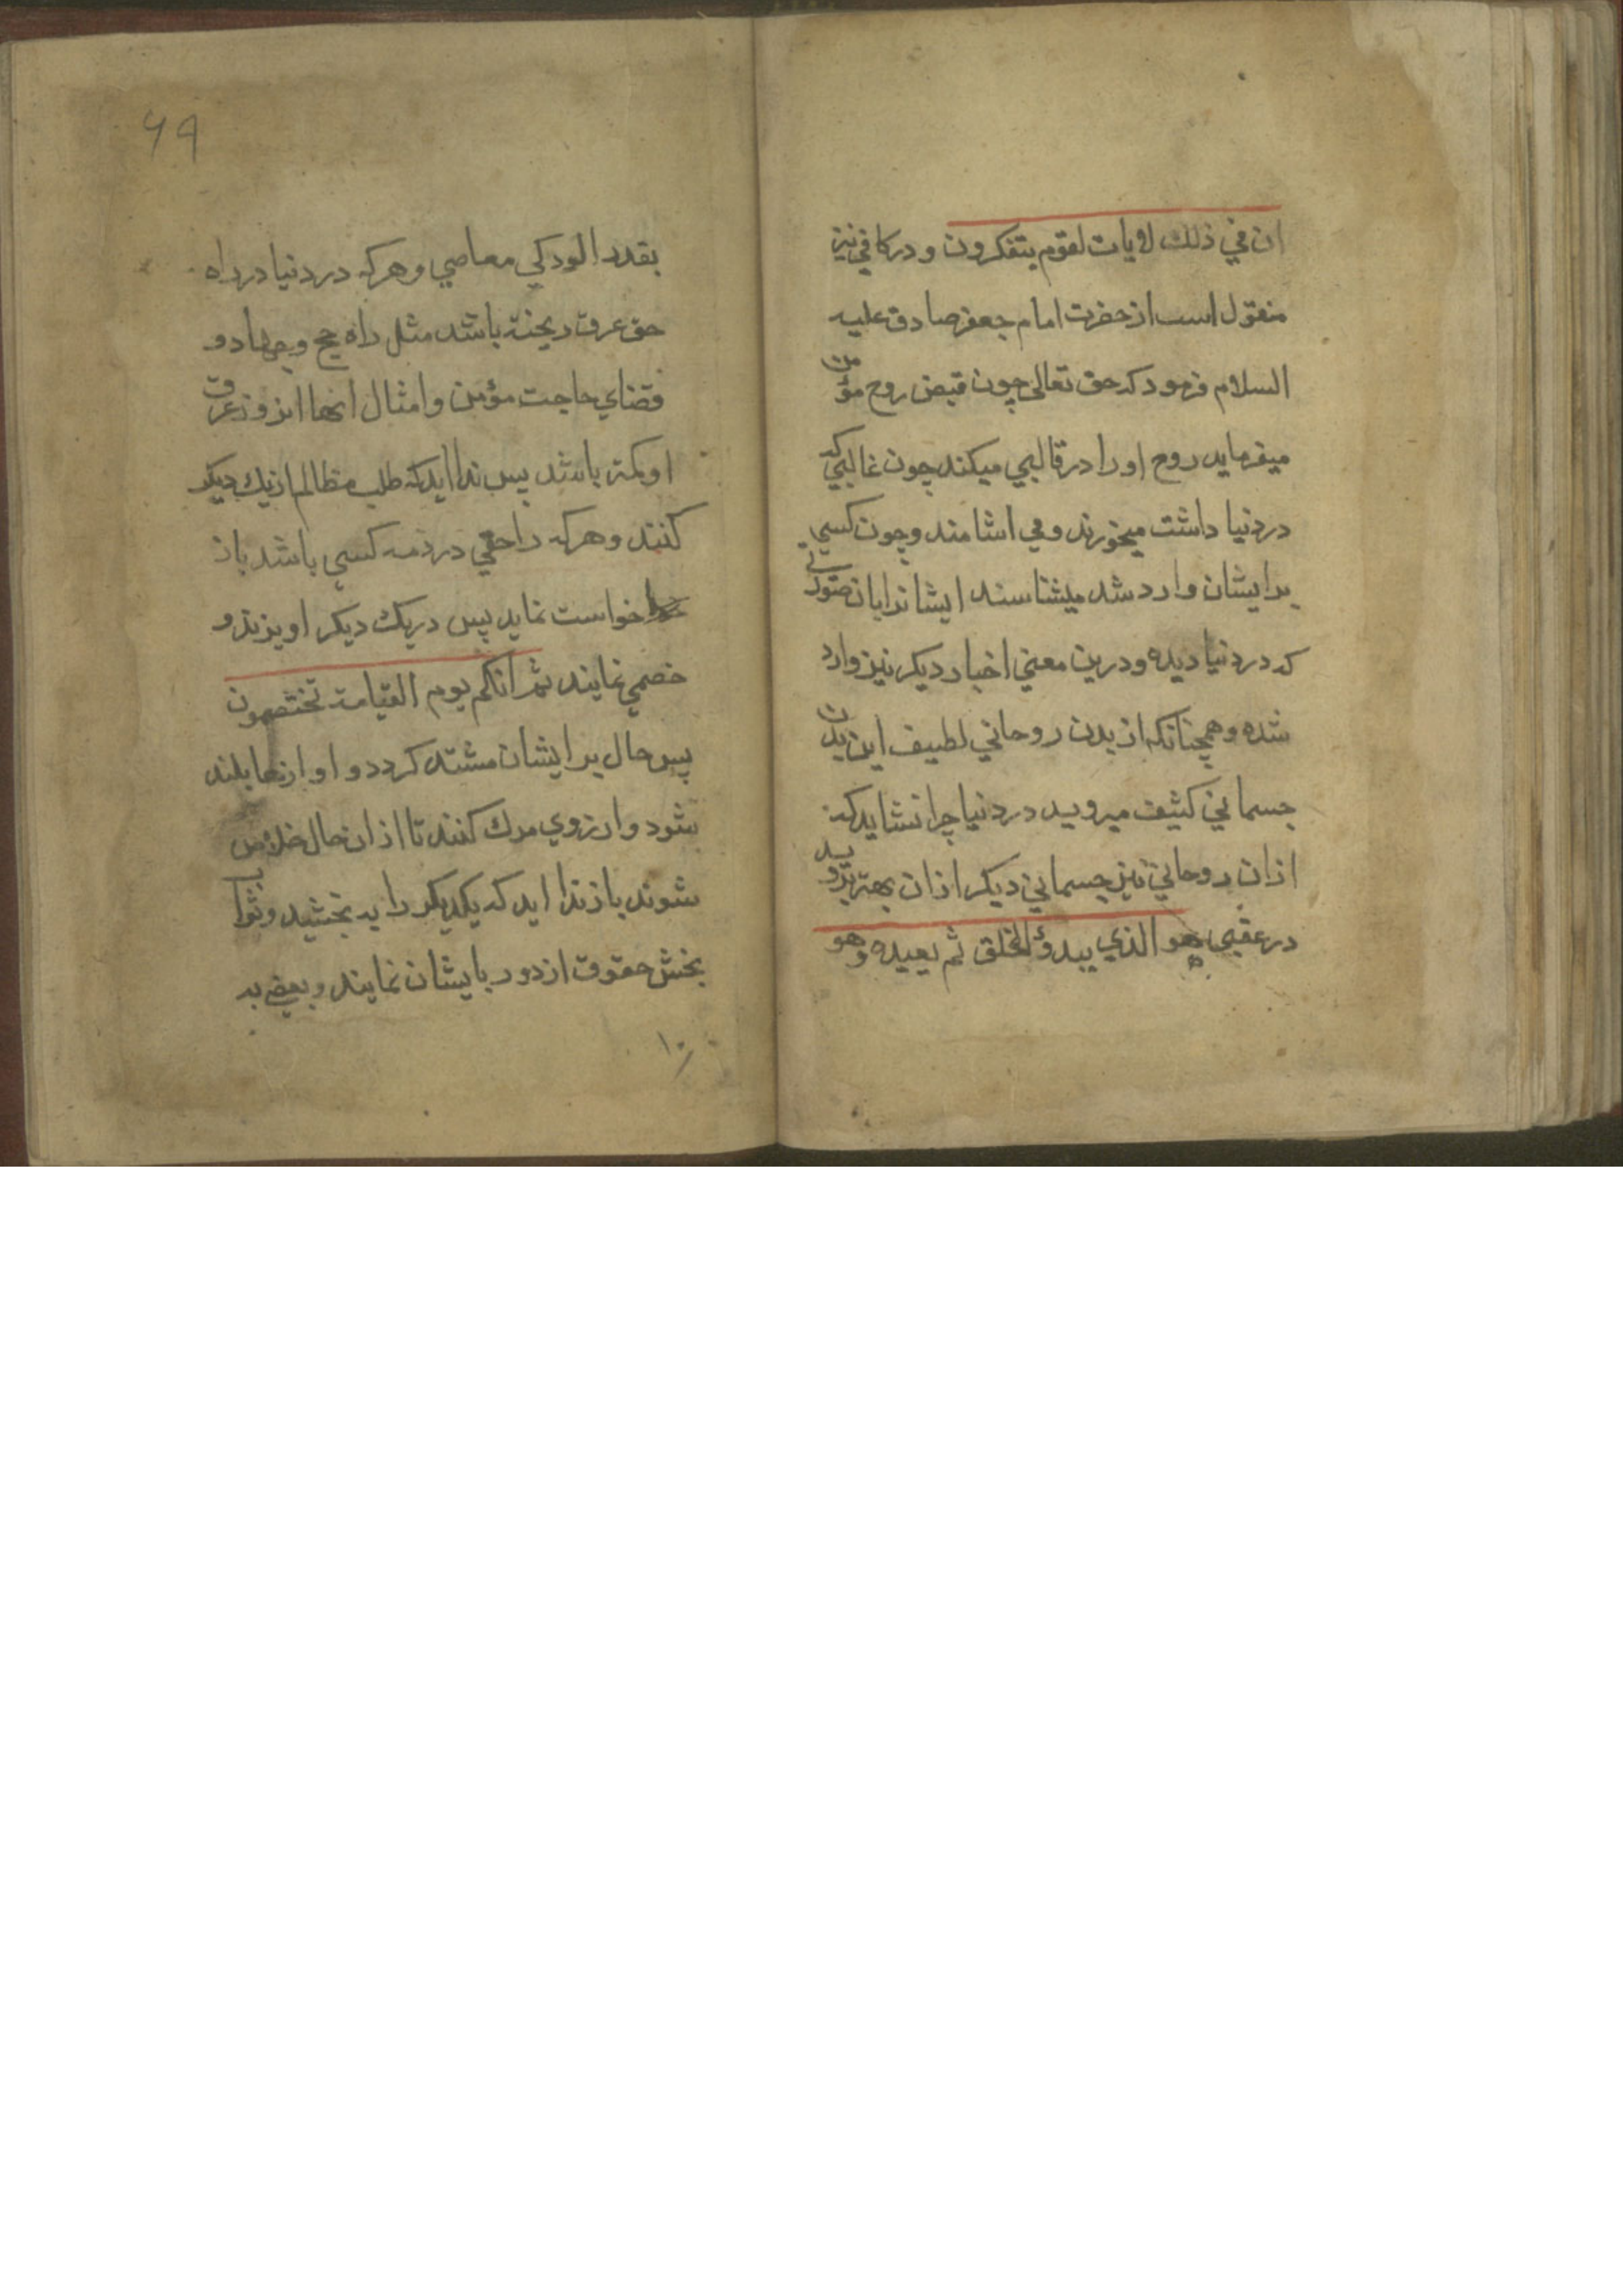 ان في ذلك لايات لقوم يتفكرون و در كافي نيز
منقول است از حضرت امام جعفر صادق عليه
السلام فرمود كه حق تعالى چون قبض روح مؤمن
ميفرمايد روح او را در قالبي ميكند چون غالبي كه
در دنيا داشت ميخورند و مي اشامند و چون كسي
بر ايشان وارد شد ميشناسند ايشانرا بان صورتي
كه در دنيا ديده و درين معني اخبار ديكر نيز وارد
شده و همچنانكه از بدن روحاني لطيف اين بدن
جسماني كثيف ميرويد در دنيا چرا نشايد كه
از ان روحاني نيز جسماني ديكر از ان بهتر برويد
در عقبي هو الذي يبدؤ الخلق ثم يعيده وهو
۶۹
بقدر الودكي معاصي و هركه در دنيا در راه
حق عرق ريخته باشد مثل راه حج و جهاد و
قضاي حاجت مؤمن و امثال انها انروز عرق
او كمتر باشد پس ندا ايد كه طلب مظالم از يك ديكر
كنند و هركه را حقي در ذمه كسي باشد باز
خواست نمايد پس در يك ديكر اويزند و
خصمي نمايند ثم انكم يوم القيامة تختصمون
پس حال بر ايشان مشتد كردد و اوازها بلند
شود و ارزوي مرك كنند تا از ان حال خلاص
شوند باز ندا ايد كه يكديكر را به بخشيد و ثواب
بخش حقوق از دور بايشان نمايند و بعضي به
۱۰